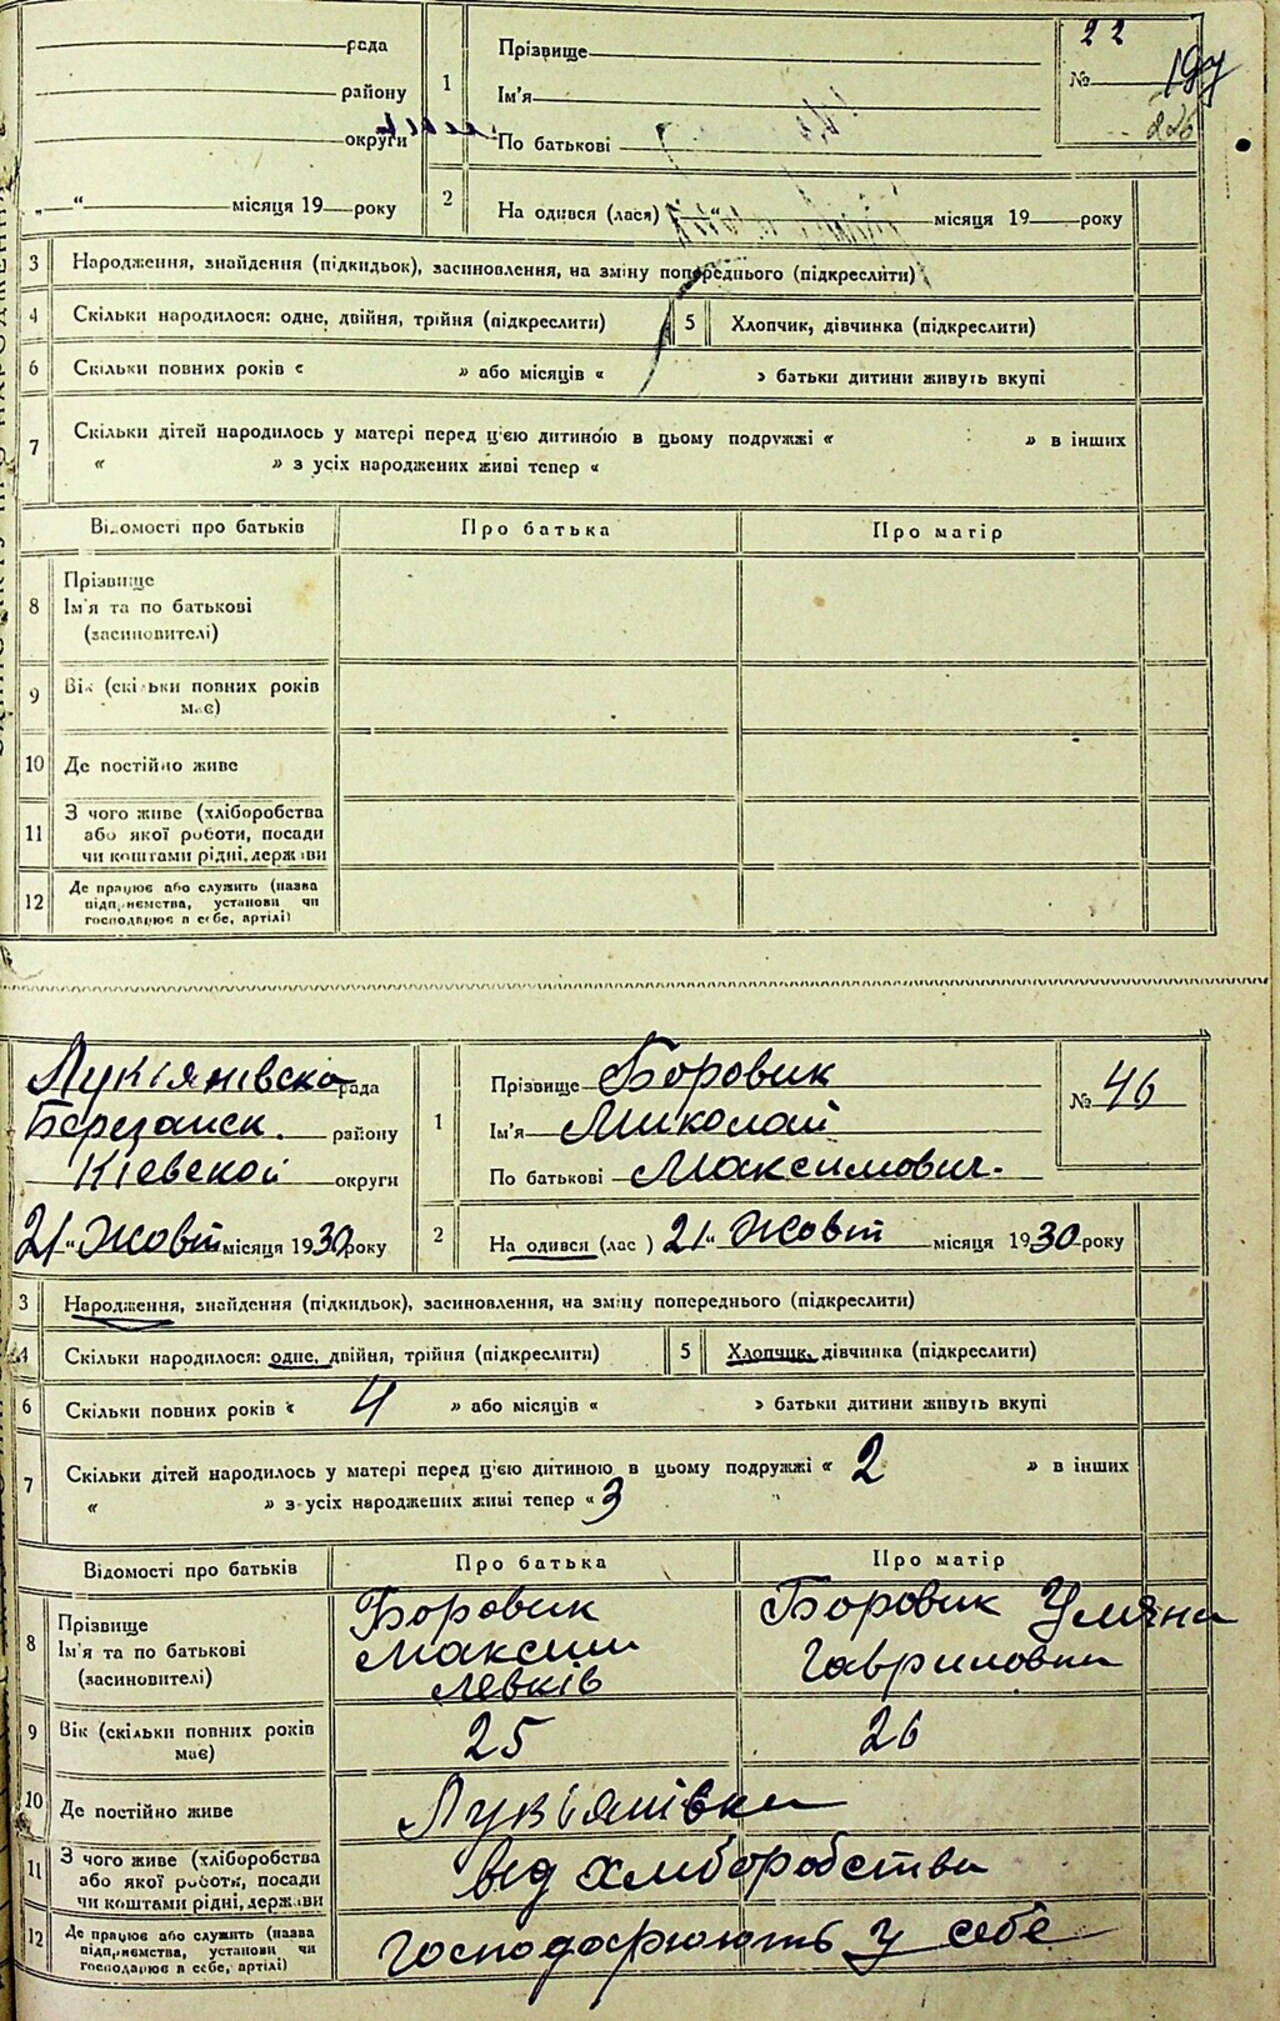 рада
району
округи
„ “ місяця 19 року
1
Прізвище
Ім'я
По батькові
22
№
2
На одився (лася) „ “ місяця 19 року
3 Народження, знайдення (підкидьок), засиновлення, на зміну попереднього (підкреслити)
4 Скільки народилося: одне, двійня, трійня (підкреслити) 5 Хлопчик, дівчинка (підкреслити)
6 Скільки повних років « » або місяців « » батьки дитини живуть вкупі
7 Скільки дітей народилось у матері перед ц'єю дитиною в цьому подружжі « » в інших
« » з усіх народжених живі тепер «
Відомості про батьків Про батька Про матір
8 Прізвище
Ім'я та по батькові
(засиновителі)
9 Вік (скільки повних років
має)
10 Де постійно живе
11 З чого живе (хліборобства
або якої роботи, посади
чи коштами рідні, держави
12 Де працює або служить (назва
підприємства, установи чи
господарює в себе, артілі)
Лукіянівска рада
Березанск. району
Кіевской округи
21 “ Жовт місяця 1930 року
1
Прізвище Боровик
Ім'я Миколай
По батькові Максимович.
№ 46
2
На одився (лас ) 21 “ Жовт місяця 1930 року
3 Народження, знайдення (підкидьок), засиновлення, на зміну попереднього (підкреслити)
4 Скільки народилося: одне, двійня, трійня (підкреслити) 5 Хлопчик, дівчинка (підкреслити)
6 Скільки повних років « 4 » або місяців « » батьки дитини живуть вкупі
7 Скільки дітей народилось у матері перед ц'єю дитиною в цьому подружжі « 2 » в інших
« » з усіх народжених живі тепер « 3
Відомості про батьків Про батька Про матір
8 Прізвище
Ім'я та по батькові
(засиновителі)
Боровик
Максим
Левків
Боровик Уляна
Гавриловна
9 Вік (скільки повних років
має)
25 26
10 Де постійно живе Лукіянівка
11 З чого живе (хліборобства
або якої роботи, посади
чи коштами рідні, держави
від хлиборобства
12 Де працює або служить (назва
підприємства, установи чи
господарює в себе, артілі)
Господарюють у себе